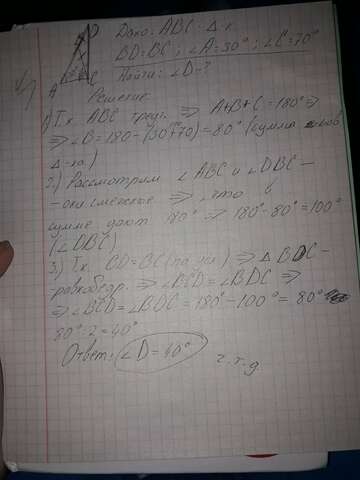 N1
D
B
A
C
Дано: ABC - Δ-к.
BD=BC; ∠A=30°; ∠C=70°
Найти: ∠D-?
Решение:
1) Т.к. ABC треуг. ⇒ A+B+C=180° ⇒
⇒ ∠B=180-(30+70)=80° (сумма углов
Δ-ка.)
2.) Рассмотрим ∠ABC и ∠DBC -
- они смежные ⇒ что в
сумме дают 180° ⇒ 180°-80°=100°
(∠DBC)
3.) Т.к. CD=BC (по усл.) ⇒ Δ BDC -
- равнобедр. ⇒ ∠BCD=∠BDC ⇒
⇒ ∠BCD=∠BDC=180°-100°=80°
80°:2=40°
Ответ: ∠D=40°
ч.т.д.